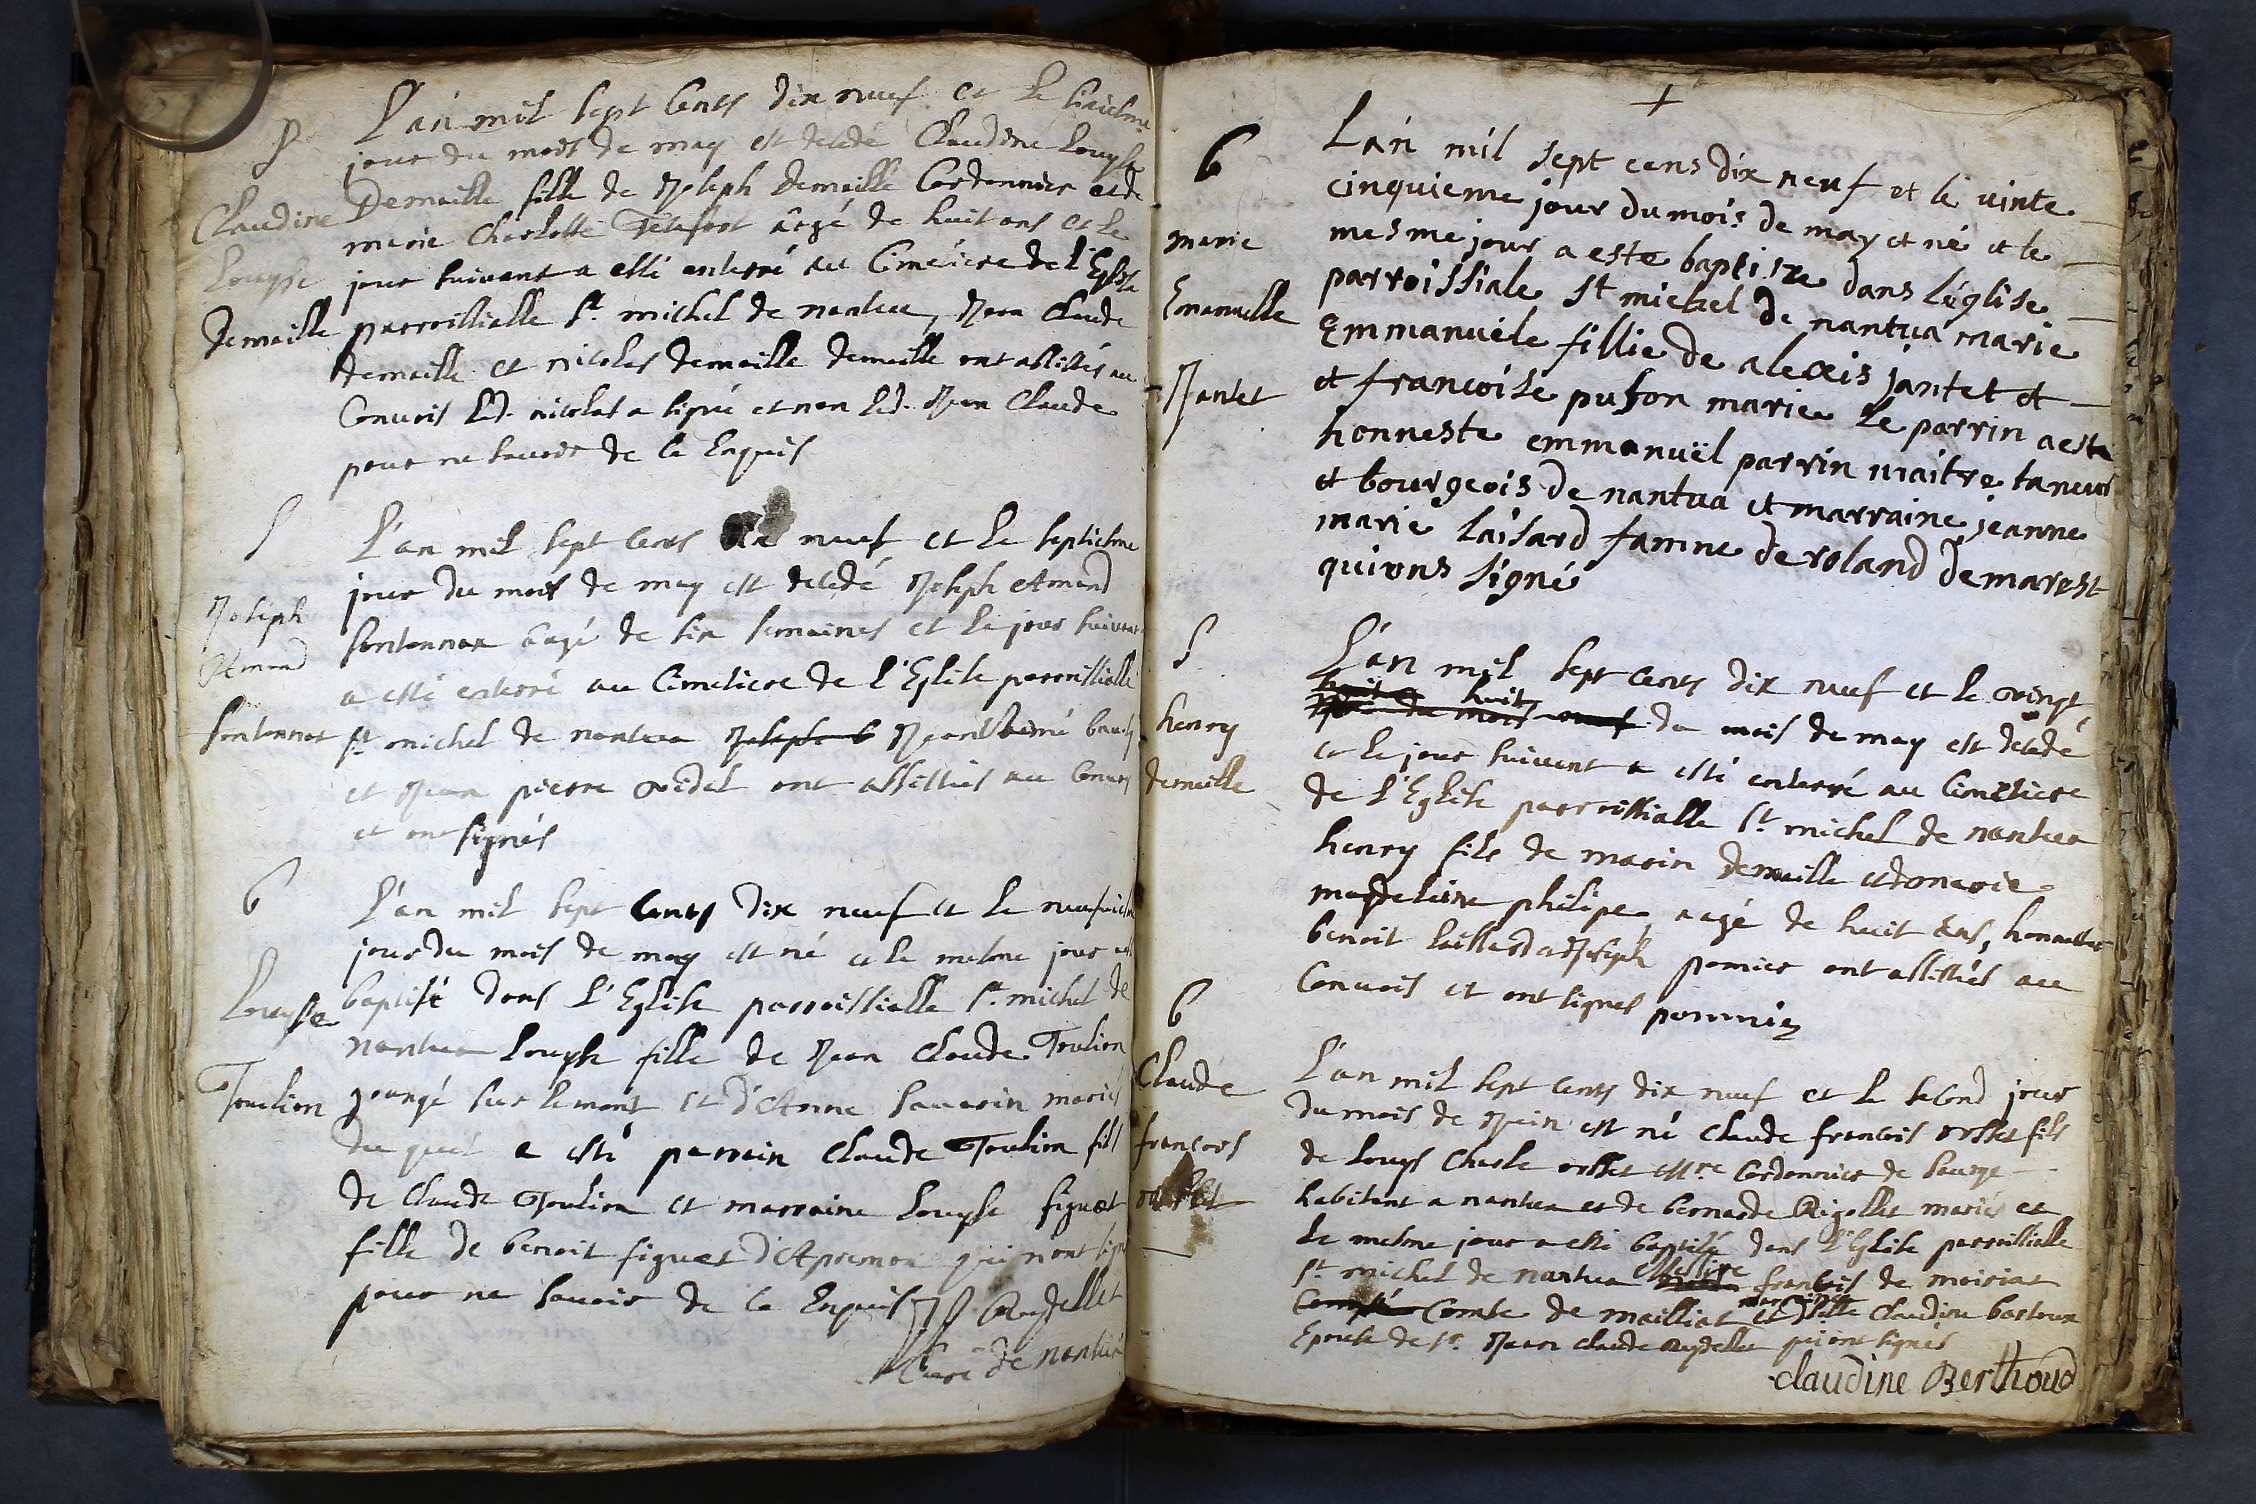 S
Claudine
Louyse
demaille
L'an mil sept cents dix neuf et le
jour du mois de may est decedé Claudine Louyse
Demaille fille de Joseph demaille Cordonnier et de
marie Charlotte aagé de huit ans et le
jour suivant a esté enterré au Cimetiere de l'Eglise
parroissialle St. michel de nantua, Jean Claude
demaille et nicolas demaille demaille ont assistés au
Convois led. nicolas a signé et non led. Jean Claude
pour ne scavoir de ce Enquis
S
Joseph
Amand
Sontonnax
L'an mil sept cents dix neuf et le septiesme
jour du mois de may est decedé Joseph Amand
Sontonnax aagé de six semaines et le jour suivant
a esté enterré au Cimetiere de l'Eglise parroissialle
St. michel de nantua Joseph b Jean
et Jean pierre vidal ont assistés au Convois
et ont signés
6
Louyse
Toulion
L'an mil sept cents dix neuf et le neufviesme
jour du mois de may est né et le mesme jour
baptisé dans l'Eglise parroissialle St. michel de
nantua Louyse fille de Jean Claude Toulion
grangé sur le mont et d'Anne Savarin mariés
du quel a esté parrain Claude Toulion fils
de Claude Toulion et marraine Louyse figuet
fille de benoit figuet d'Apremont qui n'ont signé
pour ne scavoir de ce Enquis Reydellet
Curé de nantua
+
6
marie
Emanuelle
Jantet
L'an mil sept cens dix neuf et le vinte
cinquieme jour du mois de may et né et le
mesme jour a este baptisze dans l'église
parroissiale st michel de nantua marie
Emmanuéle fillie de alexis jantet et
et francoise puson marie le parrin a este
honneste emmanuël parrin maitre taneur
et bourgeois de nantua et marraine jeanne
marie laisard famme de roland demarest
qui ons signé
S
henry
demaille
L'an mil sept cents dix neuf et le vingt
huit du mois de may est decedé
et le jour suivant a esté enterré au Cimetiere
de l'Eglise parroissialle St. michel de nantua
henry fils de marin demaille et de marie
magdeleine philipe aagé de huit ans, honnestes
benoit et Joseph pomier ont assistés au
Convois et ont signés pommiez
6
Claude
francois
L'an mil sept cents dix neuf et le second jour
du mois de Juin est né Claude francois orsset fils
de Louys Charle orsset mre. Cordonnier de
habitant a nantua et de bernarde Rigollet mariés et
le mesme jour a esté baptisé dans l'Eglise parroissialle
St. michel de nantua messire francois de moiriat
Comte de mailliat et marraine Dlle Claudine
Epouse de Sr. Jean Claude Reydellet qui ont signés
claudine Berthoud